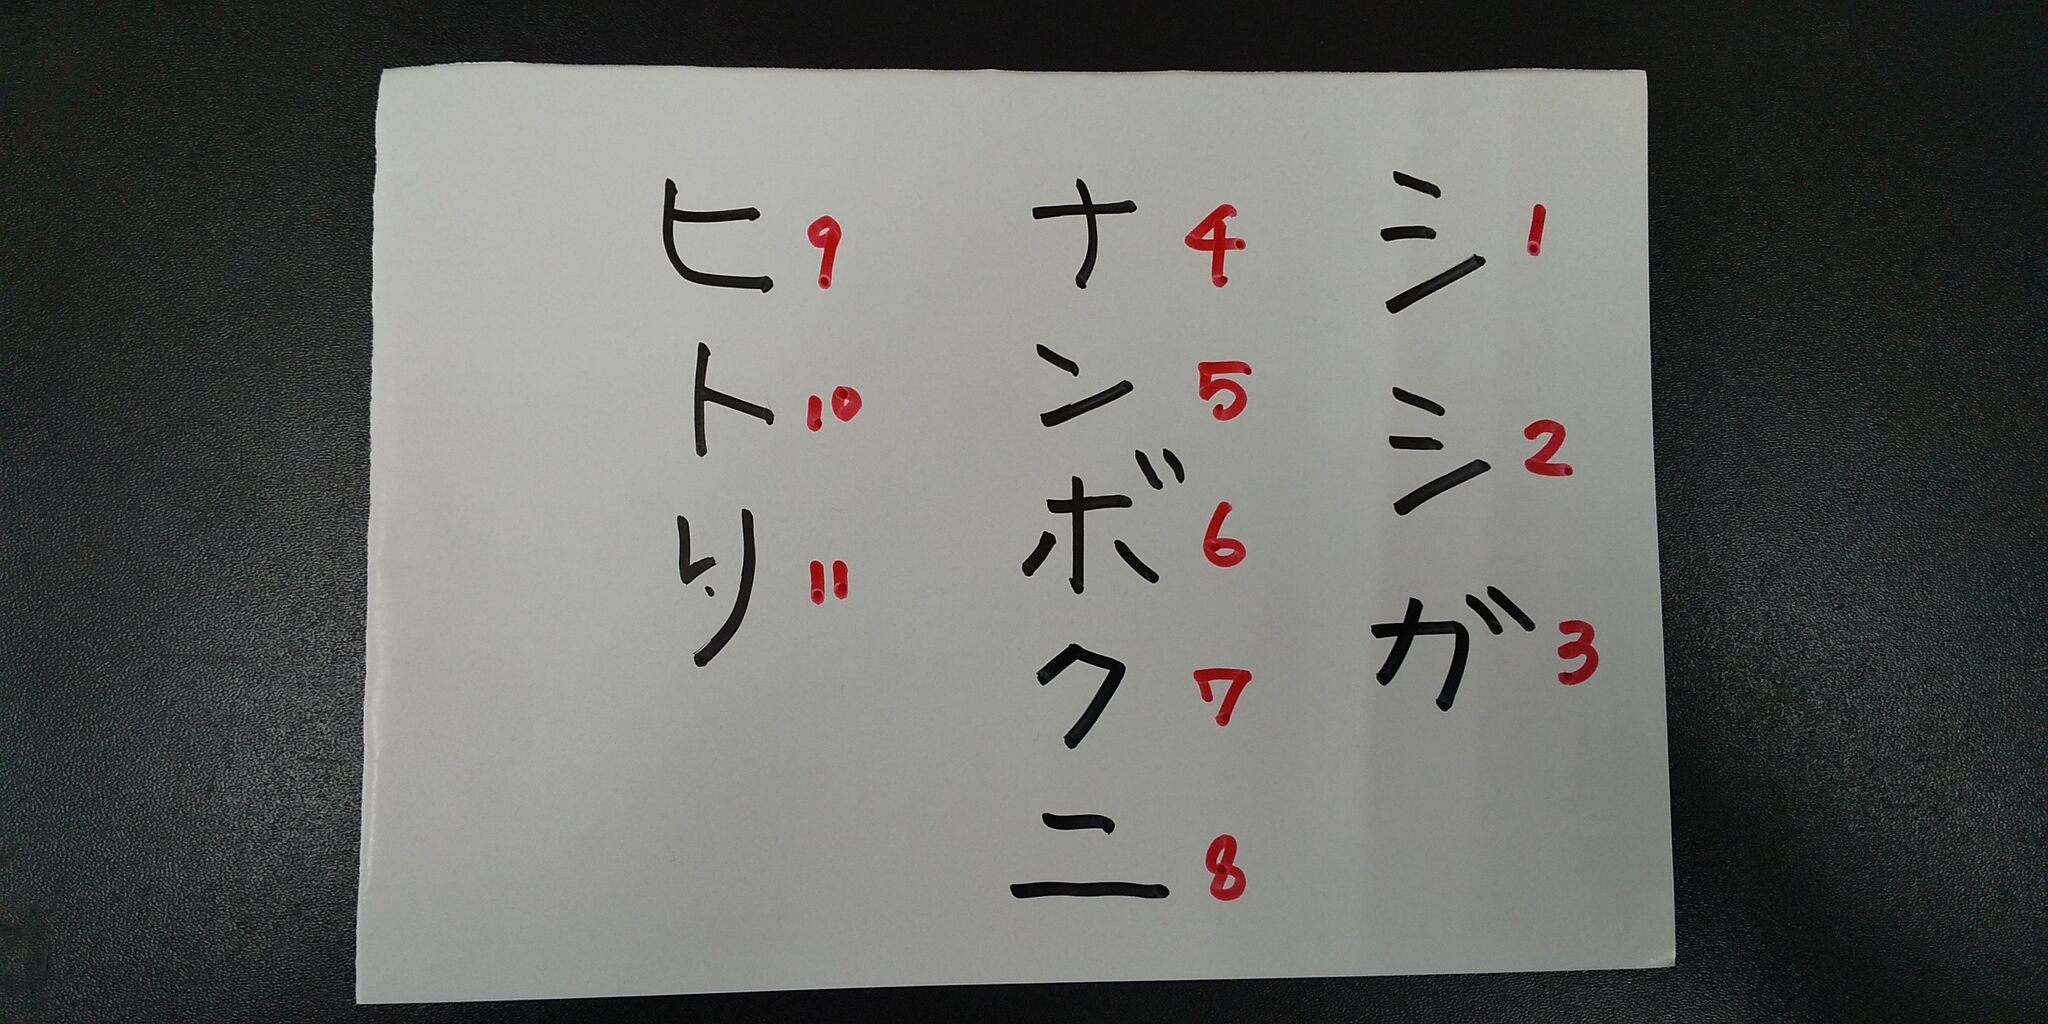 シ1シ2ガ3
ナ4ン5ボ6ク7ニ8
ヒ9ト10リ11